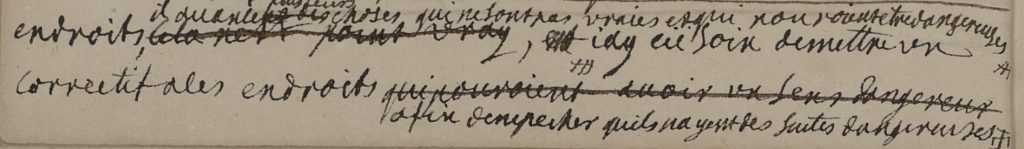 il avance plusieurs choses qui ne sont pas vraies et qui pouroient etre dangereuses
endroits, cela n'est point vray, et iay eu soin de mettre un
correctif a les endroits qui pouroient avoir un sens dangereux
afin dempecher quils nayent des suites dangereuses